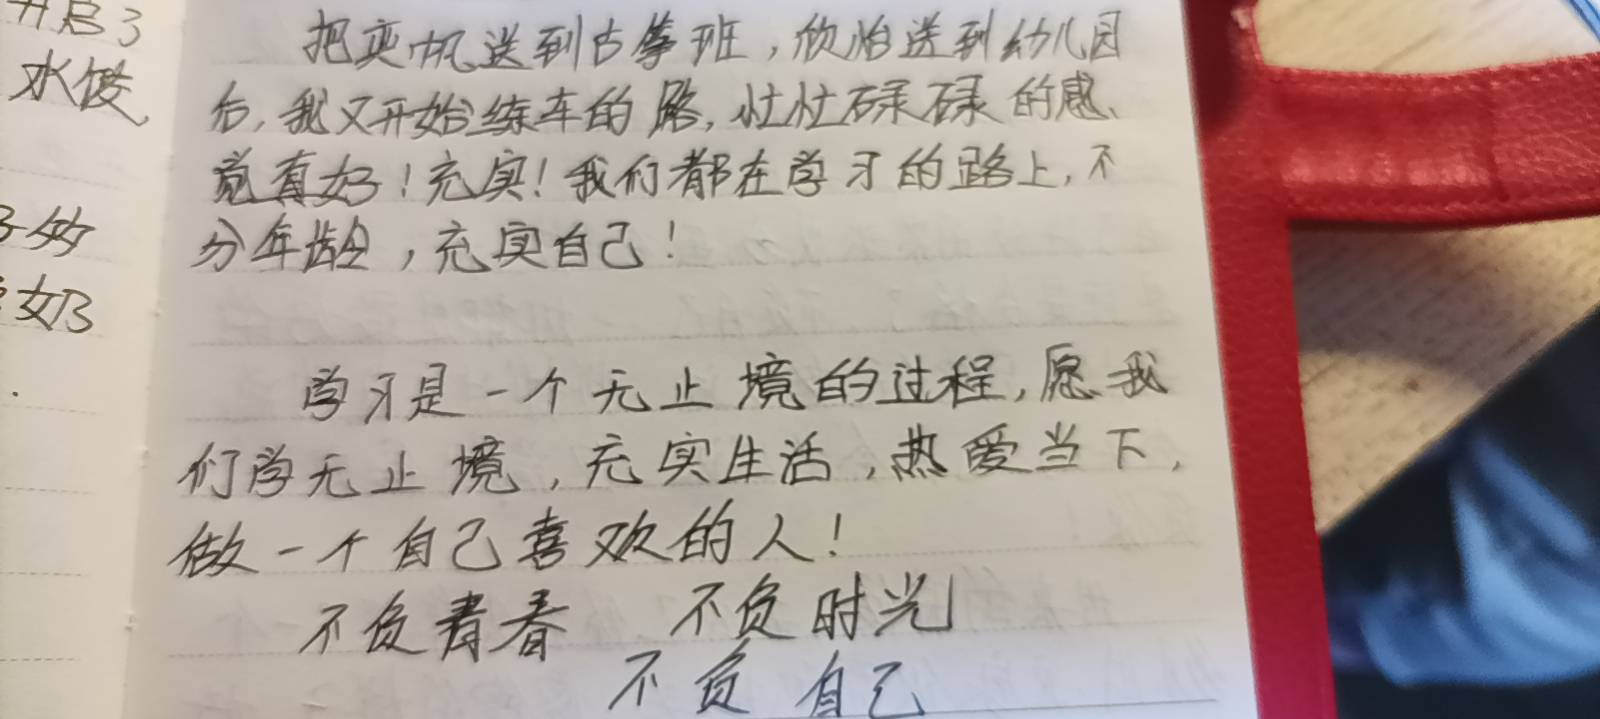 开启了
水饺
好
把奕帆送到古拳班，欣怡送到幼儿园
后，我又开始练车的路，忙忙碌碌的感
觉真好！充实！我们都在学习的路上，不
分年龄，充实自己！
学习是一个无止境的过程，愿我
们学无止境，充实生活，热爱当下，
做一个自己喜欢的人！
不负青春 不负时光
不负自己